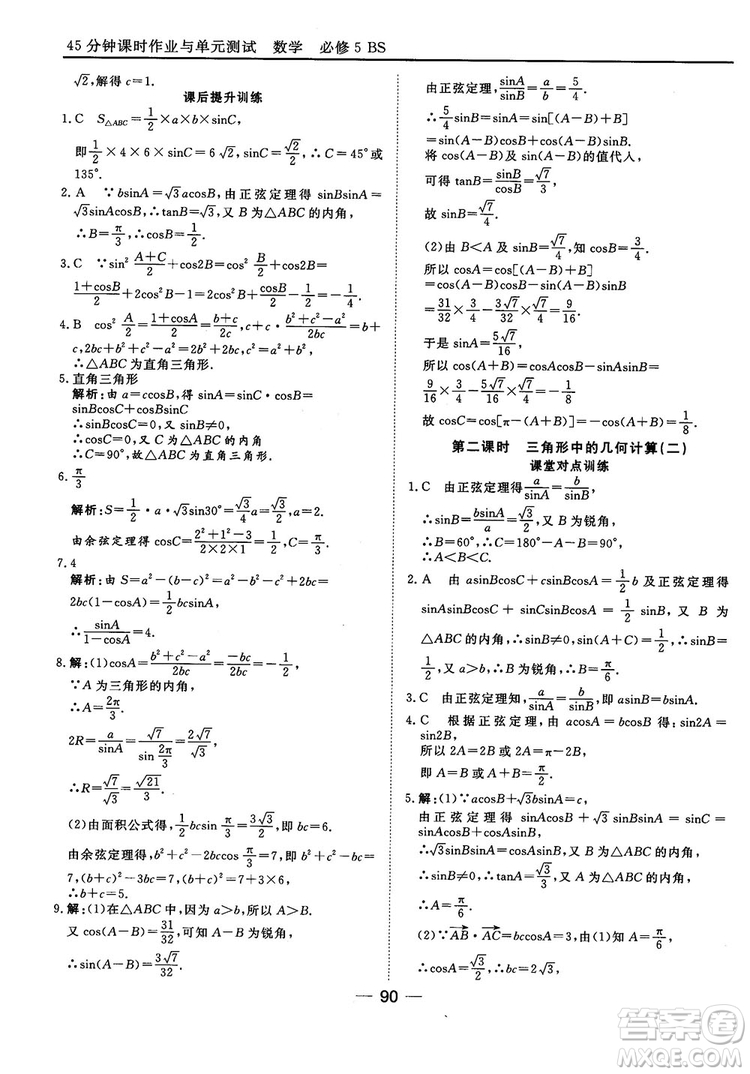 45分钟课时作业与单元测试 数学 必修5 BS
√2,解得c=1.
课后提升训练
1.C S△ABC=1/2×a×b×sinC,
即1/2×4×6×sinC=6√2,∴sinC=√2/2,∴C=45°或
135°.
2.A ∵bsinA=√3acosB,由正弦定理得sinBsinA=
√3sinAcosB,∴tanB=√3,又B为△ABC的内角,
∴B=π/3,故选A.
3.C ∵sin²(A+C)/2+cos2B=cos²B/2+cos2B=
(1+cosB)/2+2cos²B-1=2cos²B+cosB/2-1/2=-1/4.
4.B cos²A/2=(1+cosA)/2=(b+c)/2c,c+c·(b²+c²-a²)/2bc=b+
c,2bc+b²+c²-a²=2b²+2bc,c²=a²+b².
∴△ABC为直角三角形.
5.直角三角形
解析:由a=ccosB,得sinA=sinC·cosB=
sinBcosC+cosBsinC
∴sinBcosC=0,∵sinB≠0,
∴cosC=0,∵0<C<π,
∴C=90°,故△ABC为直角三角形.
6.π/3
解析:S=1/2·a·√3sin30°=√3/4a=√3/2,a=2.
由余弦定理得cosC=(2²+1²-3)/(2×2×1)=1/2,C=π/3.
7.4
解析:由S=a²-(b-c)²=a²-b²-c²+2bc=
2bc(1-cosA)=1/2bcsinA,
∴sinA/(1-cosA)=4.
8.解:(1)cosA=(b²+c²-a²)/2bc=-bc/2bc=-1/2,
∵A为三角形的内角,
∴A=2π/3.
2R=a/sinA=√7/sin2π/3=2√7/√3,
∴R=√7/√3=√21/3.
(2)由面积公式得,1/2bcsin π/3=3√3/2,∴bc=6.
由余弦定理得b²+c²-2bccosπ/3=7,即b²+c²-bc=
7,(b+c)²-3bc=7,∴(b+c)²=7+3×6,
∴b+c=5.
9.解:(1)在△ABC中,因为a>b,所以A>B,
又cos(A-B)=31/32,可知A-B为锐角,
∴sin(A-B)=3√7/32.
由正弦定理,sinA/sinB=a/b=5/4,
∴5/4sinB=sinA=sin[(A-B)+B]
=sin(A-B)cosB+cos(A-B)sinB,
将cos(A-B)及sin(A-B)的值代入,
可得tanB=sinB/cosB=√7/3,
故sinB=√7/4.
(2)由B<A及sinB=√7/4,知cosB=3/4.
所以cosA=cos[(A-B)+B]
=cos(A-B)cosB-sin(A-B)sinB=
31/32×3/4-3√7/32×√7/4=9/16.
于是sinA=5√7/16,
所以cos(A+B)=cosAcosB-sinAsinB=
9/16×3/4-5√7/16×√7/4=-1/8.
故cosC=cos[π-(A+B)]=-cos(A+B)=1/8.
第二课时 三角形中的几何计算(二)
课堂对点训练
1.C 由正弦定理得a/sinA=b/sinB,
∴sinB=bsinA/a=√3/2,又B为锐角,
∴B=60°,∴C=180°-A-B>90°,
∴A<B<C.
2.A 由asinBcosC+csinBcosA=1/2b及正弦定理得
sinAsinBcosC+sinCsinBcosA=1/2sinB,又B为
△ABC的内角,∴sinB≠0,sin(A+C)=1/2,∴B=π/6.
3.C 由正弦定理知,a/sinA=b/sinB,故选C.
4.C 根据正弦定理,由acosA=bcosB得sin2A=sin2B,
所以2A=2B或2A+2B=π,
即A=B或A+B=π/2.
5.解:(1)∵acosB+√3bsinA=c,
由正弦定理得sinAcosB+√3sinBsinA=sinC=
sinAcosB+cosAsinB,
∴√3sinBsinA=cosAsinB,又B为△ABC的内角,
∴sinB≠0,∴tanA=√3/3,又A为△ABC的内角,∴A=
π/6.
(2)∵AB·AC=bccosA=3,由(1)知A=π/6,
∴cosA=√3/2,∴bc=2√3,
90
答案圈